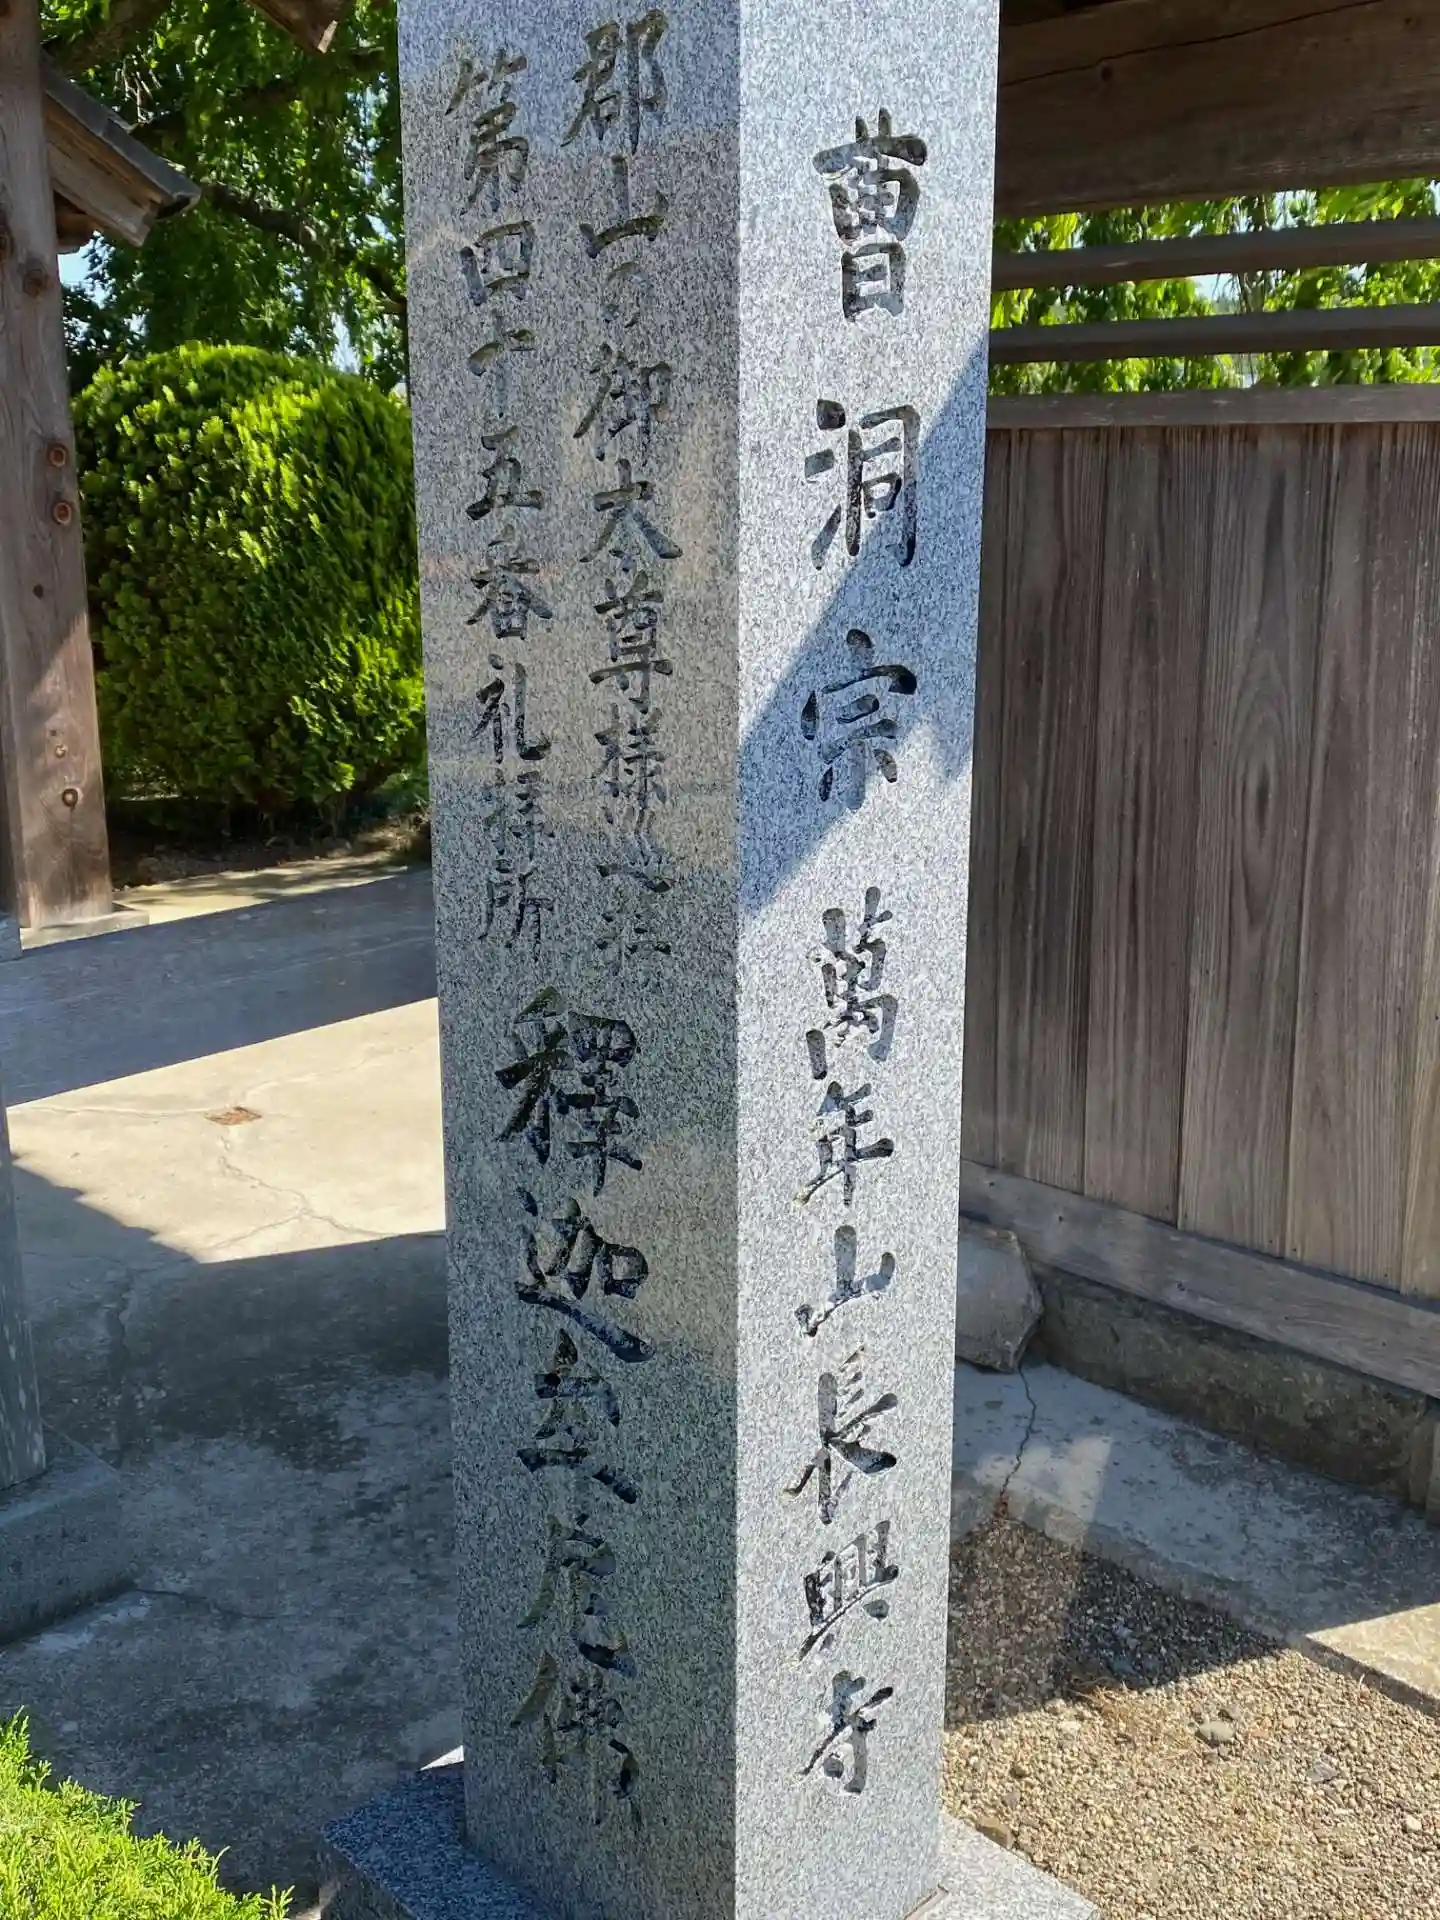 曹洞宗 萬年山長興寺
郡山の御本尊様巡礼
第四十五番礼拝所
釋迦牟尼佛